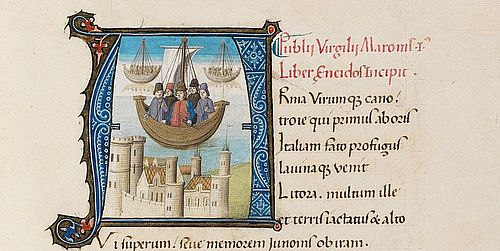 Publij Virgilij Maronis
Liber Eneidos Incipit.
Rma Virumq̨ cano,
troie qui primus aboris
Italiam fato profugus
lauinaq̨ venit
Litora. multum ille
et terris iactatus & alto
Vi superum, sue memorem Junonis ob iram.